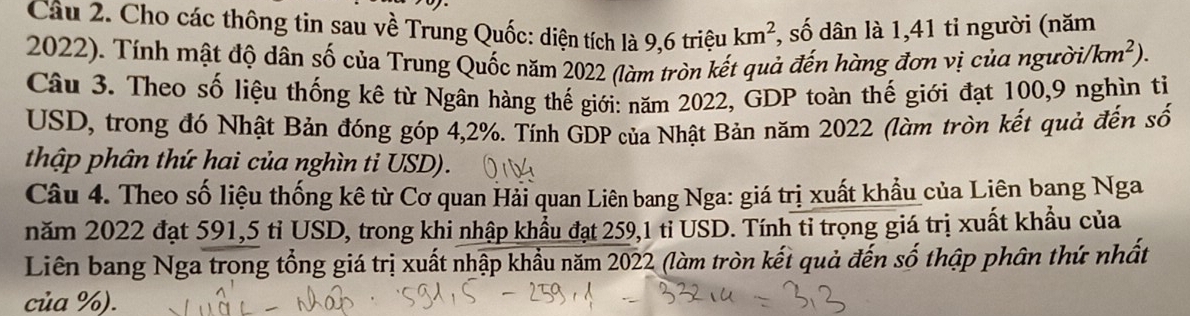 Câu 2. Cho các thông tin sau về Trung Quốc: diện tích là 9,6 triệu km², số dân là 1,41 tỉ người (năm
2022). Tính mật độ dân số của Trung Quốc năm 2022 (làm tròn kết quả đến hàng đơn vị của người/km²).
Câu 3. Theo số liệu thống kê từ Ngân hàng thế giới: năm 2022, GDP toàn thế giới đạt 100,9 nghìn tỉ
USD, trong đó Nhật Bản đóng góp 4,2%. Tính GDP của Nhật Bản năm 2022 (làm tròn kết quả đến số
thập phân thứ hai của nghìn tỉ USD). 0,04
Câu 4. Theo số liệu thống kê từ Cơ quan Hải quan Liên bang Nga: giá trị xuất khẩu của Liên bang Nga
năm 2022 đạt 591,5 tỉ USD, trong khi nhập khẩu đạt 259,1 tỉ USD. Tính tỉ trọng giá trị xuất khẩu của
Liên bang Nga trong tổng giá trị xuất nhập khẩu năm 2022 (làm tròn kết quả đến số thập phân thứ nhất
của %). Xuất - nhập . 591,5 - 259,1 = 332,4 = 3,3